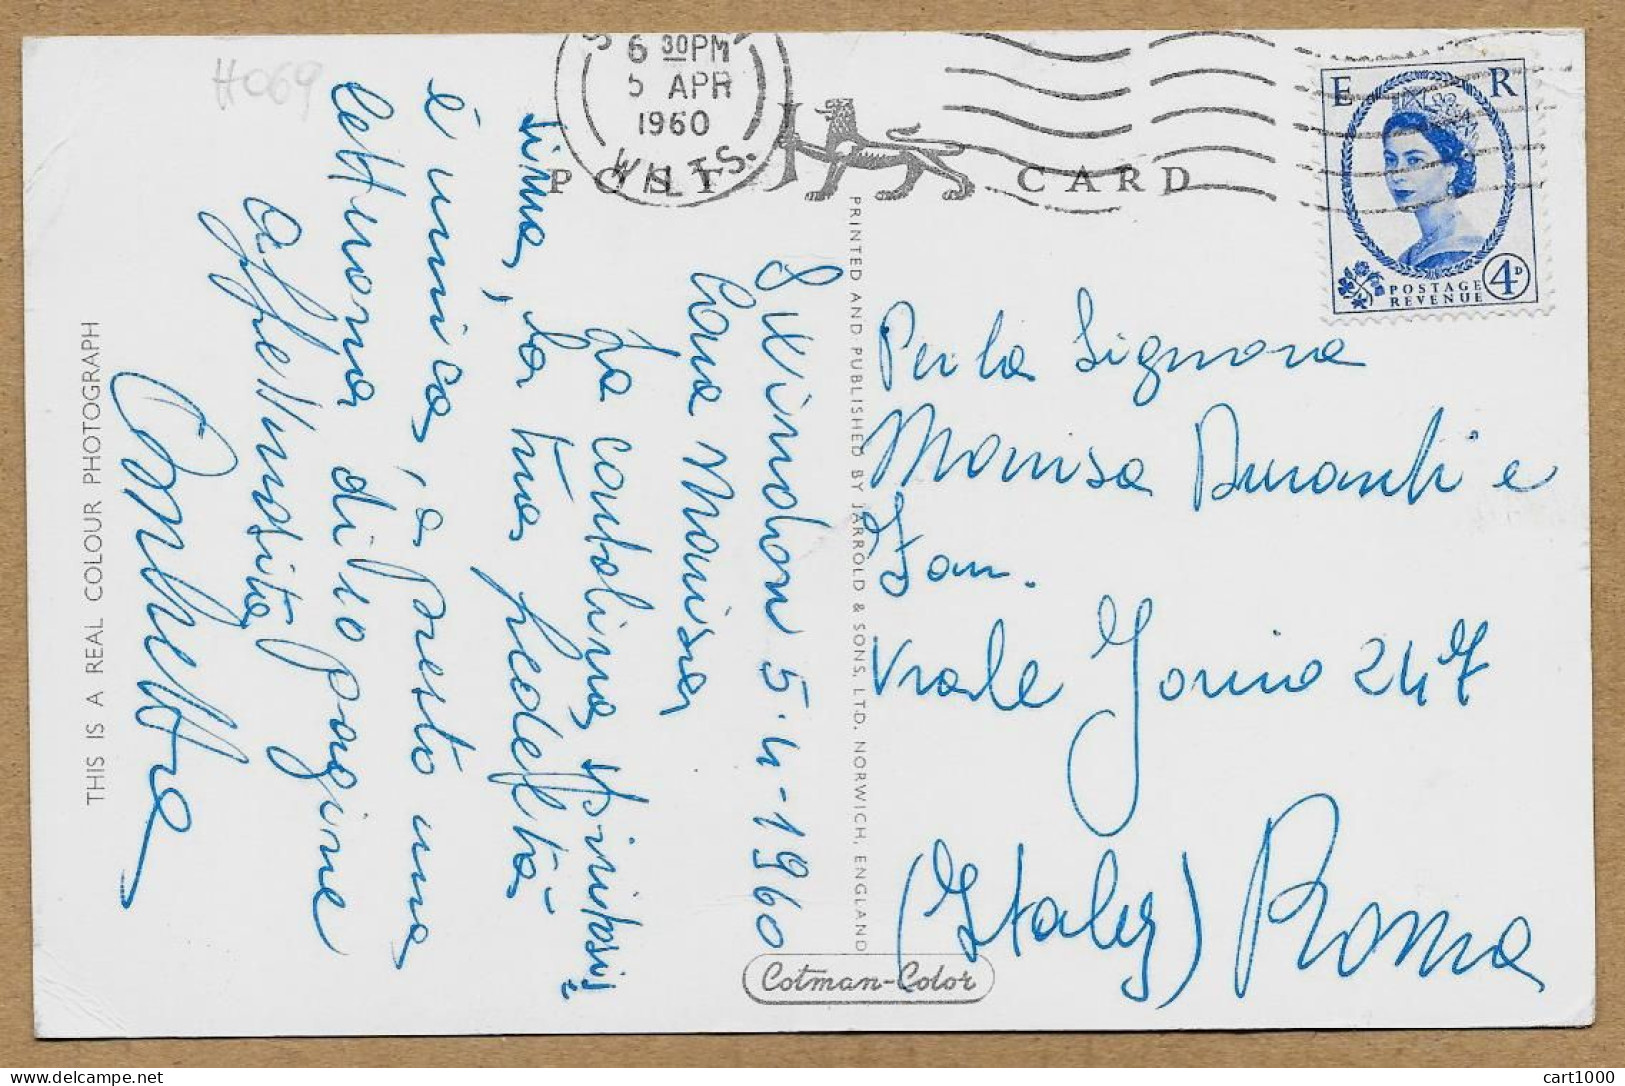 H069
S
6 30PM
5 APR
1960
WILTS.
POST CARD
E R
POSTAGE
REVENUE
4D
THIS IS A REAL COLOUR PHOTOGRAPH
PRINTED AND PUBLISHED BY JARROLD & SONS, LTD, NORWICH, ENGLAND
Cotman-Color
Swindon 5-4-1960
Cara Marisa
La cartolina spiritosis
sima, la tua fedeltà
è unica, a presto una
letterona di 10 pagine
affettuosità
Per la Signora
Marisa Duranti e
Fam.
Viale Jonio 247
(Italy) Roma
cart1000